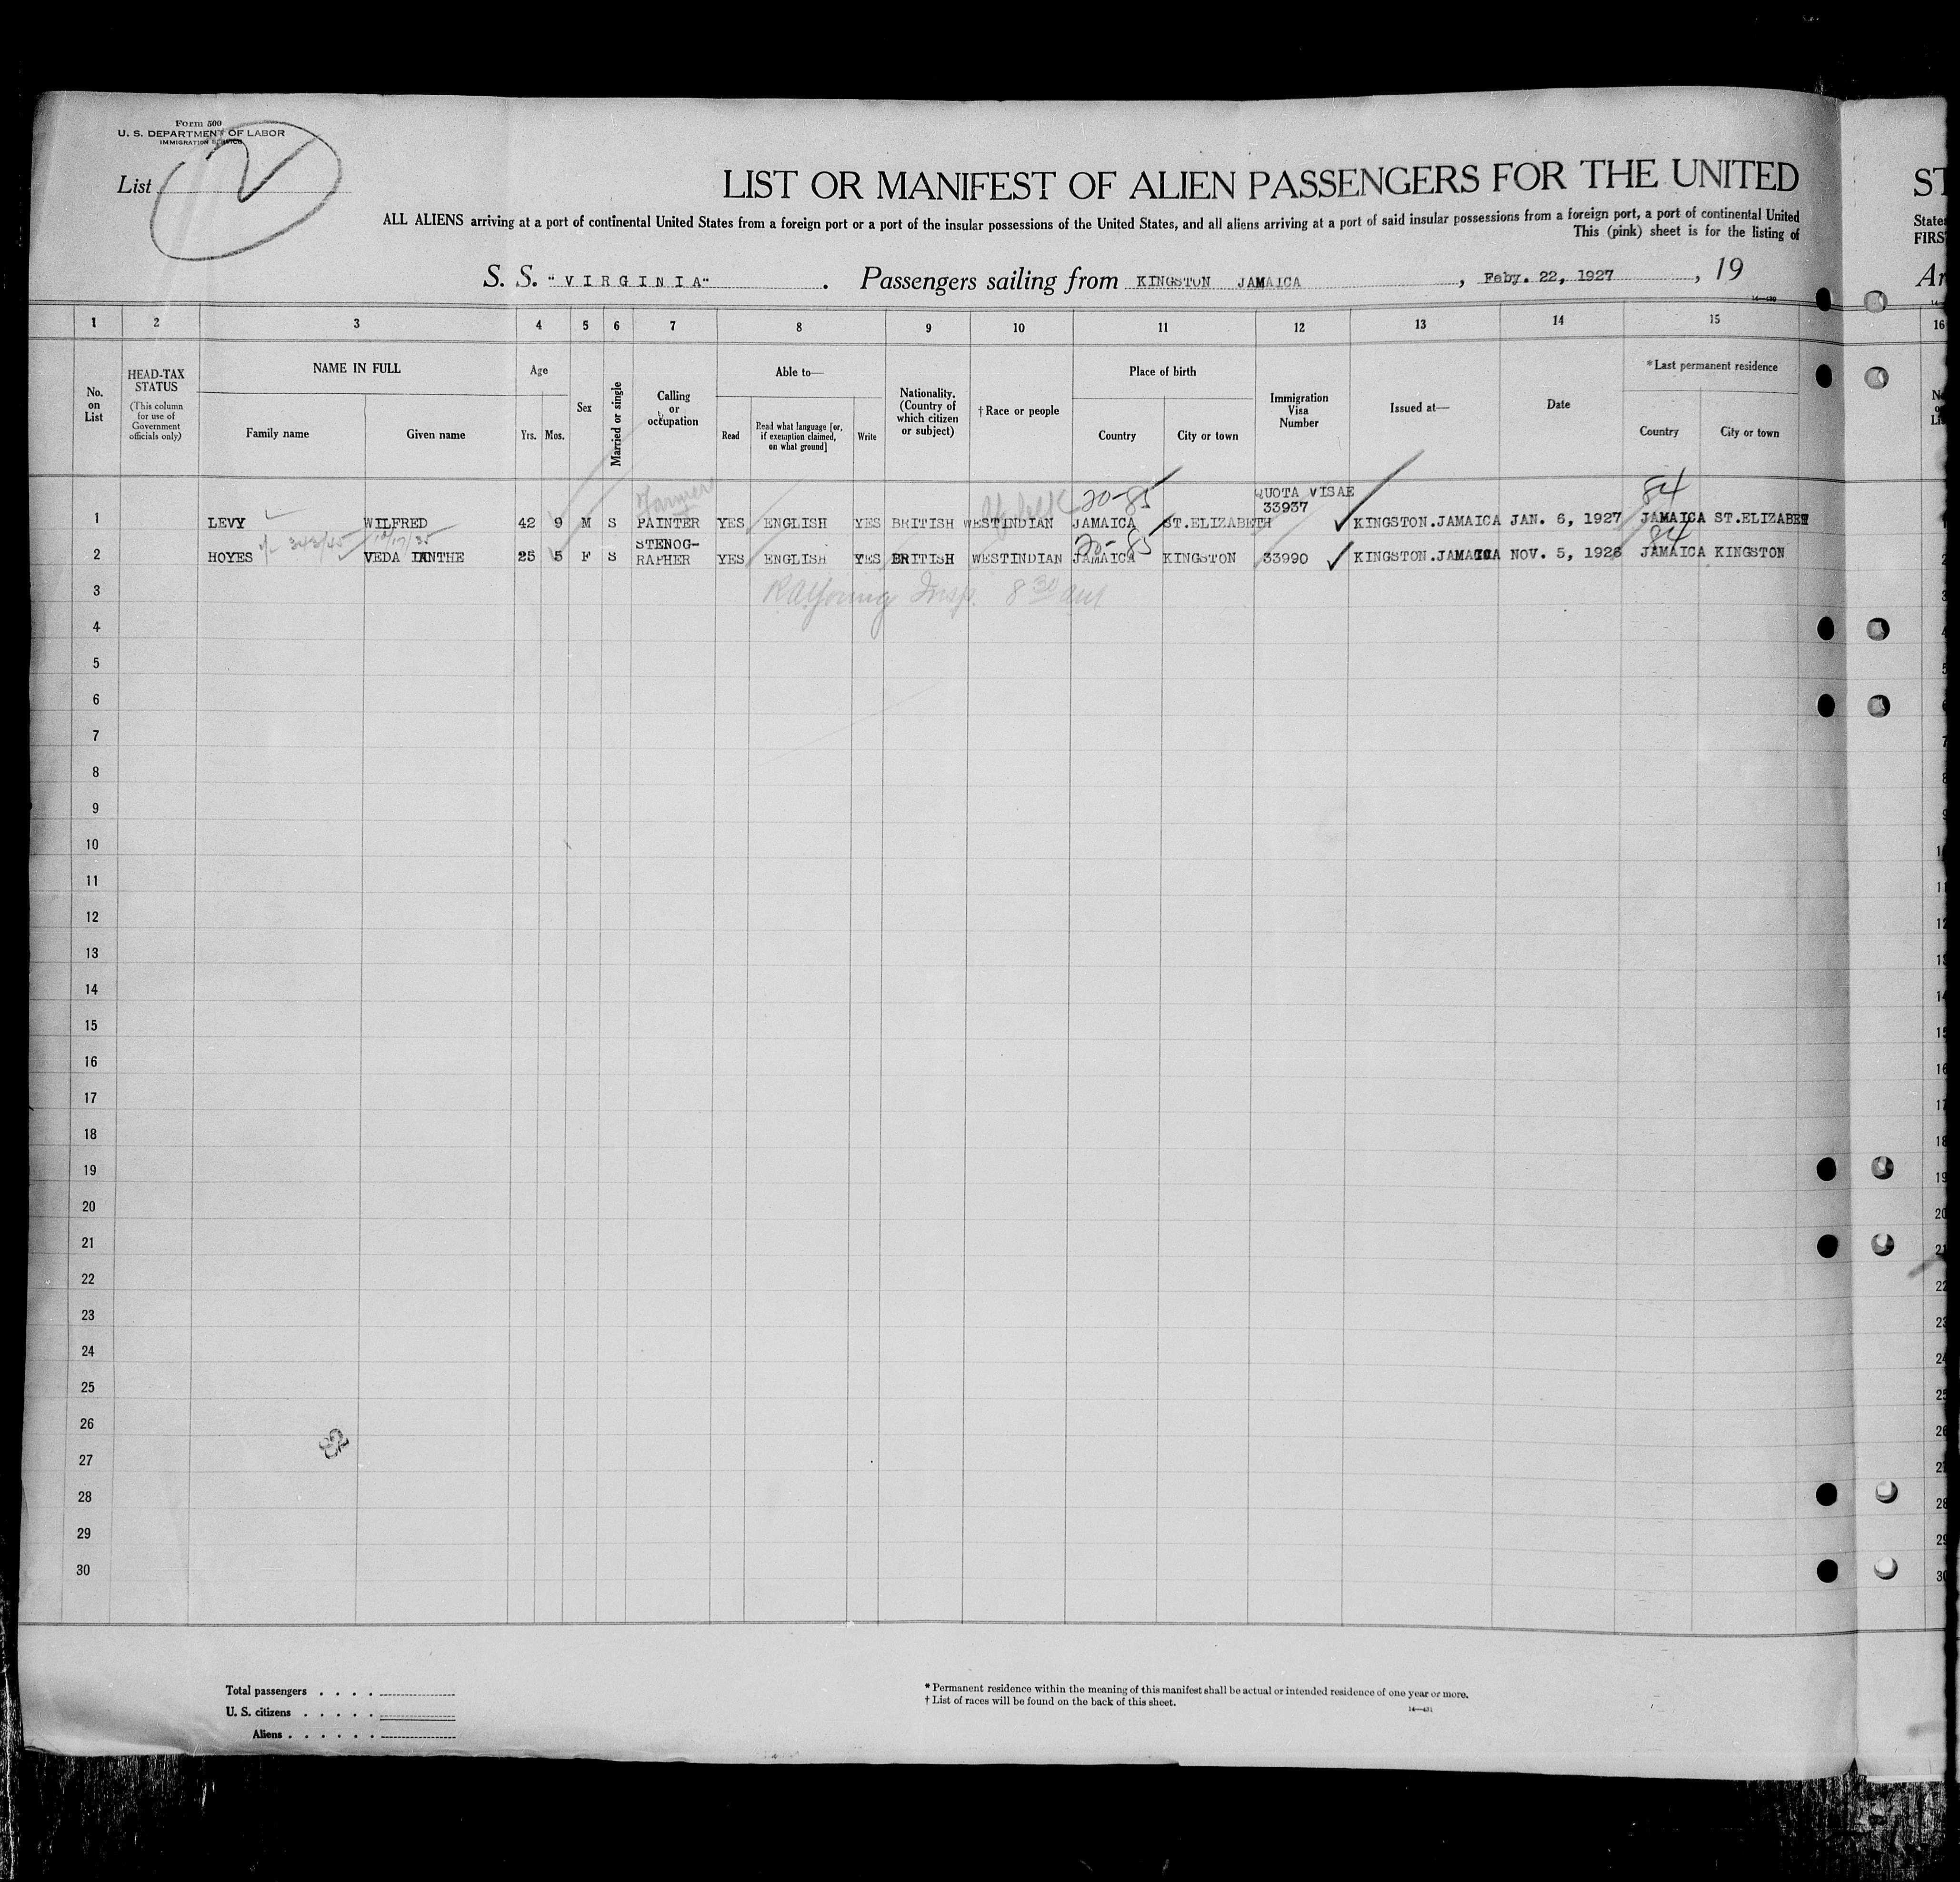 Form 500
U. S. DEPARTMENT OF LABOR
IMMIGRATION SERVICE
List 2
LIST OR MANIFEST OF ALIEN PASSENGERS FOR THE UNITED
ST
ALL ALIENS arriving at a port of continental United States from a foreign port or a port of the insular possessions of the United States, and all aliens arriving at a port of said insular possessions from a foreign port, a port of continental United
States
This (pink) sheet is for the listing of
FIRS
S. S. "VIRGINIA". Passengers sailing from KINGSTON JAMAICA, Feby. 22, 1927, 19
Ar
14—430
1 2 3 4 5 6 7 8 9 10 11 12 13 14 15 16
No. on List
HEAD-TAX STATUS (This column for use of Government officials only)
NAME IN FULL
Family name
Given name
Age
Yrs. Mos.
Sex
Married or single
Calling or occupation
Able to—
Read
Read what language [or, if exemption claimed, on what ground]
Write
Nationality. (Country of which citizen or subject)
†Race or people
Place of birth
Country
City or town
Immigration Visa Number
Issued at—
Date
*Last permanent residence
Country
City or town
Farmer 20-85 QUOTA VISAE 84
1 LEVY WILFRED 42 9 M S PAINTER YES ENGLISH YES BRITISH WESTINDIAN JAMAICA ST.ELIZABETH 33937 KINGSTON.JAMAICA JAN. 6, 1927 JAMAICA ST.ELIZABET
10/17/35 20-85 84
2 HOYES VEDA IANTHE 25 5 F S STENOG-RAPHER YES ENGLISH YES BRITISH WESTINDIAN JAMAICA KINGSTON 33990 KINGSTON.JAMAICA NOV. 5, 1926 JAMAICA KINGSTON
3 Insp. 8 30
4
5
6
7
8
9
10
11
12
13
14
15
16
17
18
19
20
21
22
23
24
25
26
27
28
29
30
Total passengers . . . .
U. S. citizens . . . . .
Aliens . . . . . .
* Permanent residence within the meaning of this manifest shall be actual or intended residence of one year or more.
† List of races will be found on the back of this sheet.
14—431